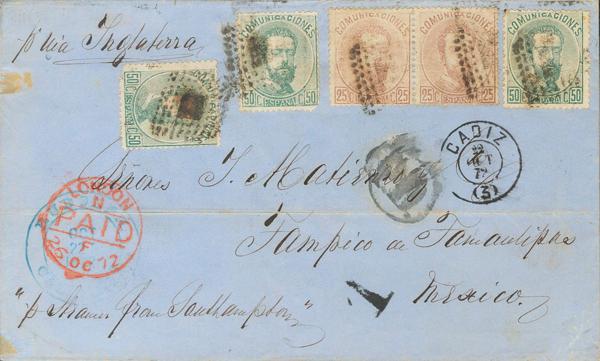 p. via Inglaterra
COMUNICACIONES
50 C. ESPAÑA C. 50
COMUNICACIONES
25 C. ESPAÑA C. 25
COMUNICACIONES
25 C. ESPAÑA C. 25
COMUNICACIONES
50 C. ESPAÑA C. 50
50 C. ESPAÑA C. 50
CADIZ
22
OCT
72
(3)
Señores J. Matienzo
LONDON
N
PAID
26 OC 72
Tampico de Tamaulipas
Mexico.
"p Steamer from Southampton"
1